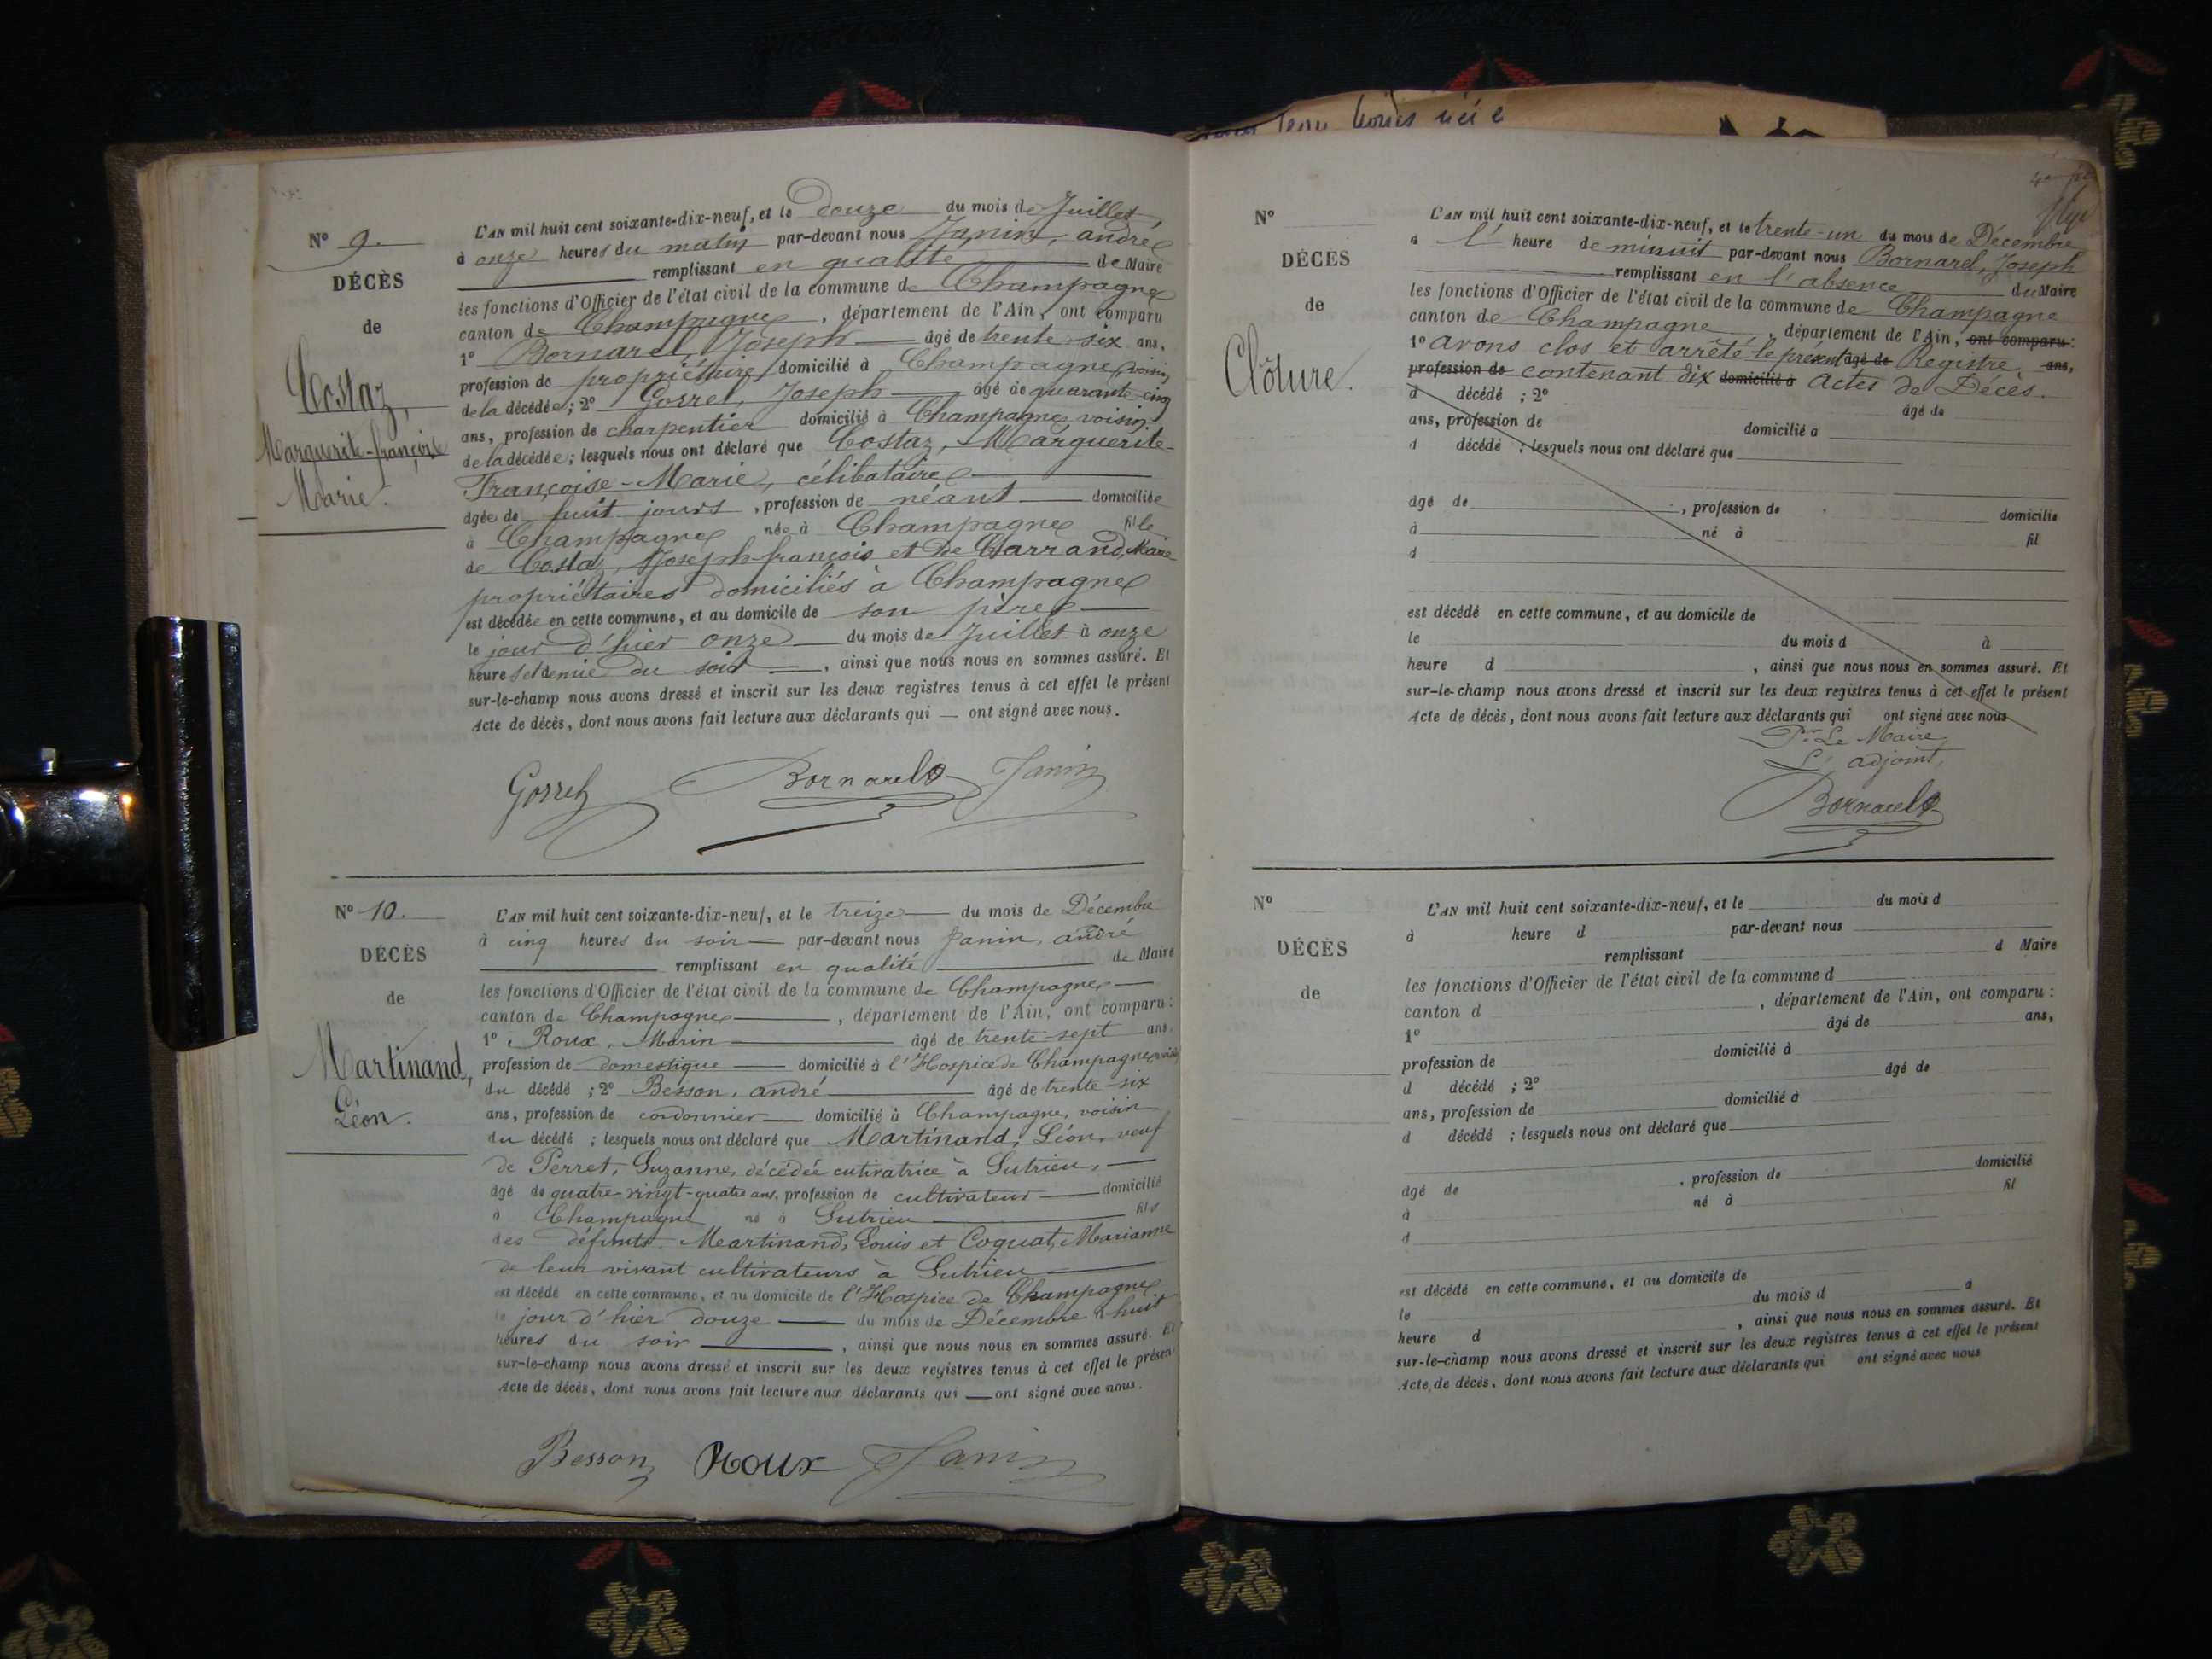 N° 9.
DÉCÈS
de
Costaz,
Marguerite-françoise
Marie.
L'AN mil huit cent soixante-dix-neuf, et le douze du mois de Juillet,
à onze heures du matin par-devant nous Janin, andré
remplissant en qualité de Maire
les fonctions d'Officier de l'état civil de la commune de Champagne
canton de Champagne, département de l'Ain, ont comparu
1° Bornarel, Joseph âgé de trente-six ans,
profession de propriétaire domicilié à Champagne, voisin
de la décédée; 2° Gorrel, Joseph âgé de quarante-cinq
ans, profession de charpentier domicilié à Champagne, voisin
de la décédée; lesquels nous ont déclaré que Costaz, Marguerite-
Françoise-Marie, célibataire
âgée de huit jours, profession de néant domiciliée
à Champagne née à Champagne fille
de Costaz, Joseph-françois et de Carrand, Marie
propriétaires domiciliés à Champagne
est décédée en cette commune, et au domicile de son père
le jour d'hier onze du mois de Juillet à onze
heures et demie du soir, ainsi que nous nous en sommes assuré. Et
sur-le-champ nous avons dressé et inscrit sur les deux registres tenus à cet effet le présent
Acte de décès, dont nous avons fait lecture aux déclarants qui — ont signé avec nous.
Bornarel Janin
N° 10.
DÉCÈS
de
Martinand,
Léon.
L'AN mil huit cent soixante-dix-neuf, et le treize du mois de Décembre
à cinq heures du soir par-devant nous Janin, andré
remplissant en qualité de Maire
les fonctions d'Officier de l'état civil de la commune de Champagne
canton de Champagne, département de l'Ain, ont comparu:
1° Roux, Marin âgé de trente-sept ans
profession de domestique domicilié à l'Hospice de Champagne, voisin
du décédé; 2° Besson, andré âgé de trente-six
ans, profession de cordonnier domicilié à Champagne, voisin
du décédé; lesquels nous ont déclaré que Martinand, Léon, veuf
de Perret, Suzanne, décédée cutivatrice à Sutrieu,
âgé de quatre-vingt-quatre ans, profession de cultivateur domicilié
à Champagne né à Sutrieu fils
des défunts Martinand, Louis et Coquat, Marianne
de leur vivant cultivateurs à Sutrieu
est décédé en cette commune, et au domicile de l'Hospice de Champagne
le jour d'hier douze du mois de Décembre à huit
heures du soir, ainsi que nous nous en sommes assuré. Et
sur-le-champ nous avons dressé et inscrit sur les deux registres tenus à cet effet le présent
Acte de décès, dont nous avons fait lecture aux déclarants qui — ont signé avec nous.
Besson Roux Janin
N°
DÉCÈS
de
Clôture.
L'AN mil huit cent soixante-dix-neuf, et le trente-un du mois de Décembre
à l' heure de minuit par-devant nous Bornarel, Joseph
remplissant en l'absence du Maire
les fonctions d'Officier de l'état civil de la commune de Champagne
canton de Champagne, département de l'Ain, ont comparu:
1° avons clos et arrêté le présent âgé de Registre ans,
profession de contenant dix domicilié à actes de Décès.
d décédé ; 2° âgé de
ans, profession de domicilié à
d décédé ; lesquels nous ont déclaré que
âgé de , profession de domicilié
à né à fil
d
est décédé en cette commune, et au domicile de
le du mois d à
heure d , ainsi que nous nous en sommes assuré. Et
sur-le-champ nous avons dressé et inscrit sur les deux registres tenus à cet effet le présent
Acte de décès, dont nous avons fait lecture aux déclarants qui ont signé avec nous
Pr Le Maire
L'adjoint,
Bornarel
N°
DÉCÈS
de
L'AN mil huit cent soixante-dix-neuf, et le du mois d
à heure d par-devant nous
remplissant d Maire
les fonctions d'Officier de l'état civil de la commune d
canton d , département de l'Ain, ont comparu :
1° âgé de ans,
profession de domicilié à
d décédé ; 2° âgé de
ans, profession de domicilié à
d décédé ; lesquels nous ont déclaré que
âgé de , profession de domicilié
à né à fil
d
est décédé en cette commune, et au domicile de
le du mois d à
heure d , ainsi que nous nous en sommes assuré. Et
sur-le-champ nous avons dressé et inscrit sur les deux registres tenus à cet effet le présent
Acte de décès, dont nous avons fait lecture aux déclarants qui ont signé avec nous